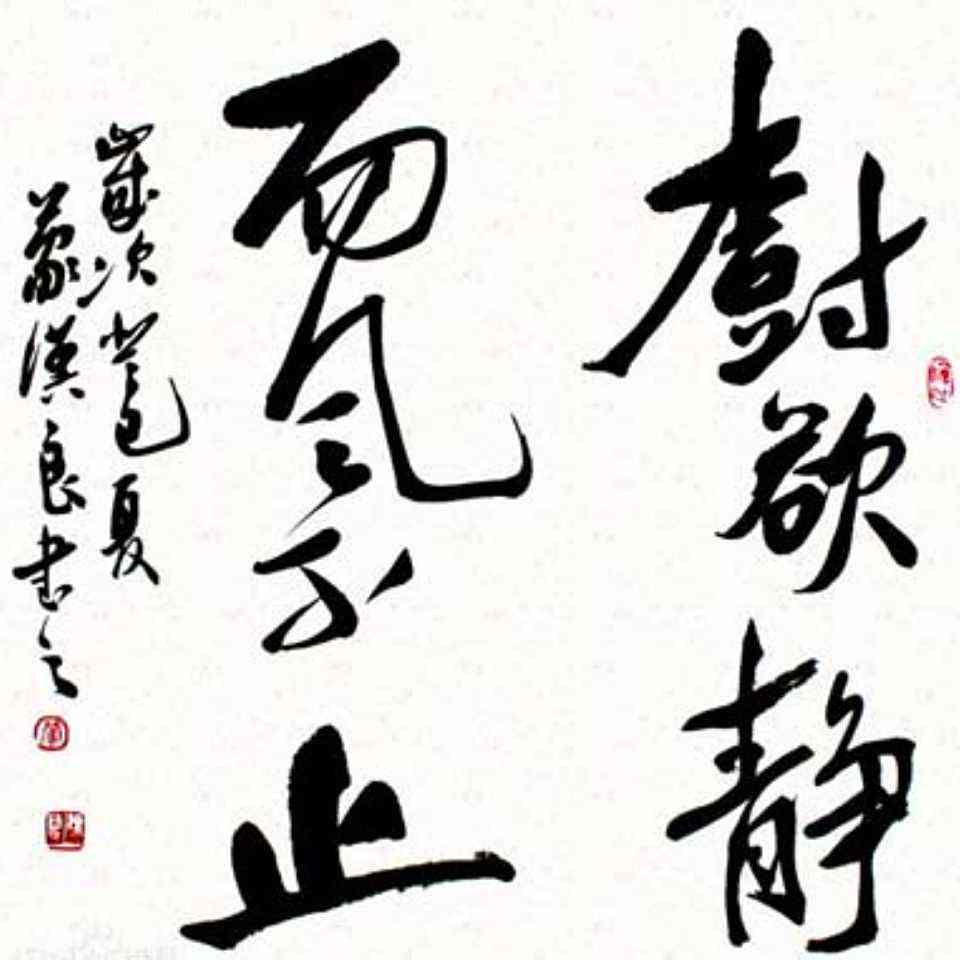 樹欲静
而風不止
歲次癸巳夏
蒙漢良書之